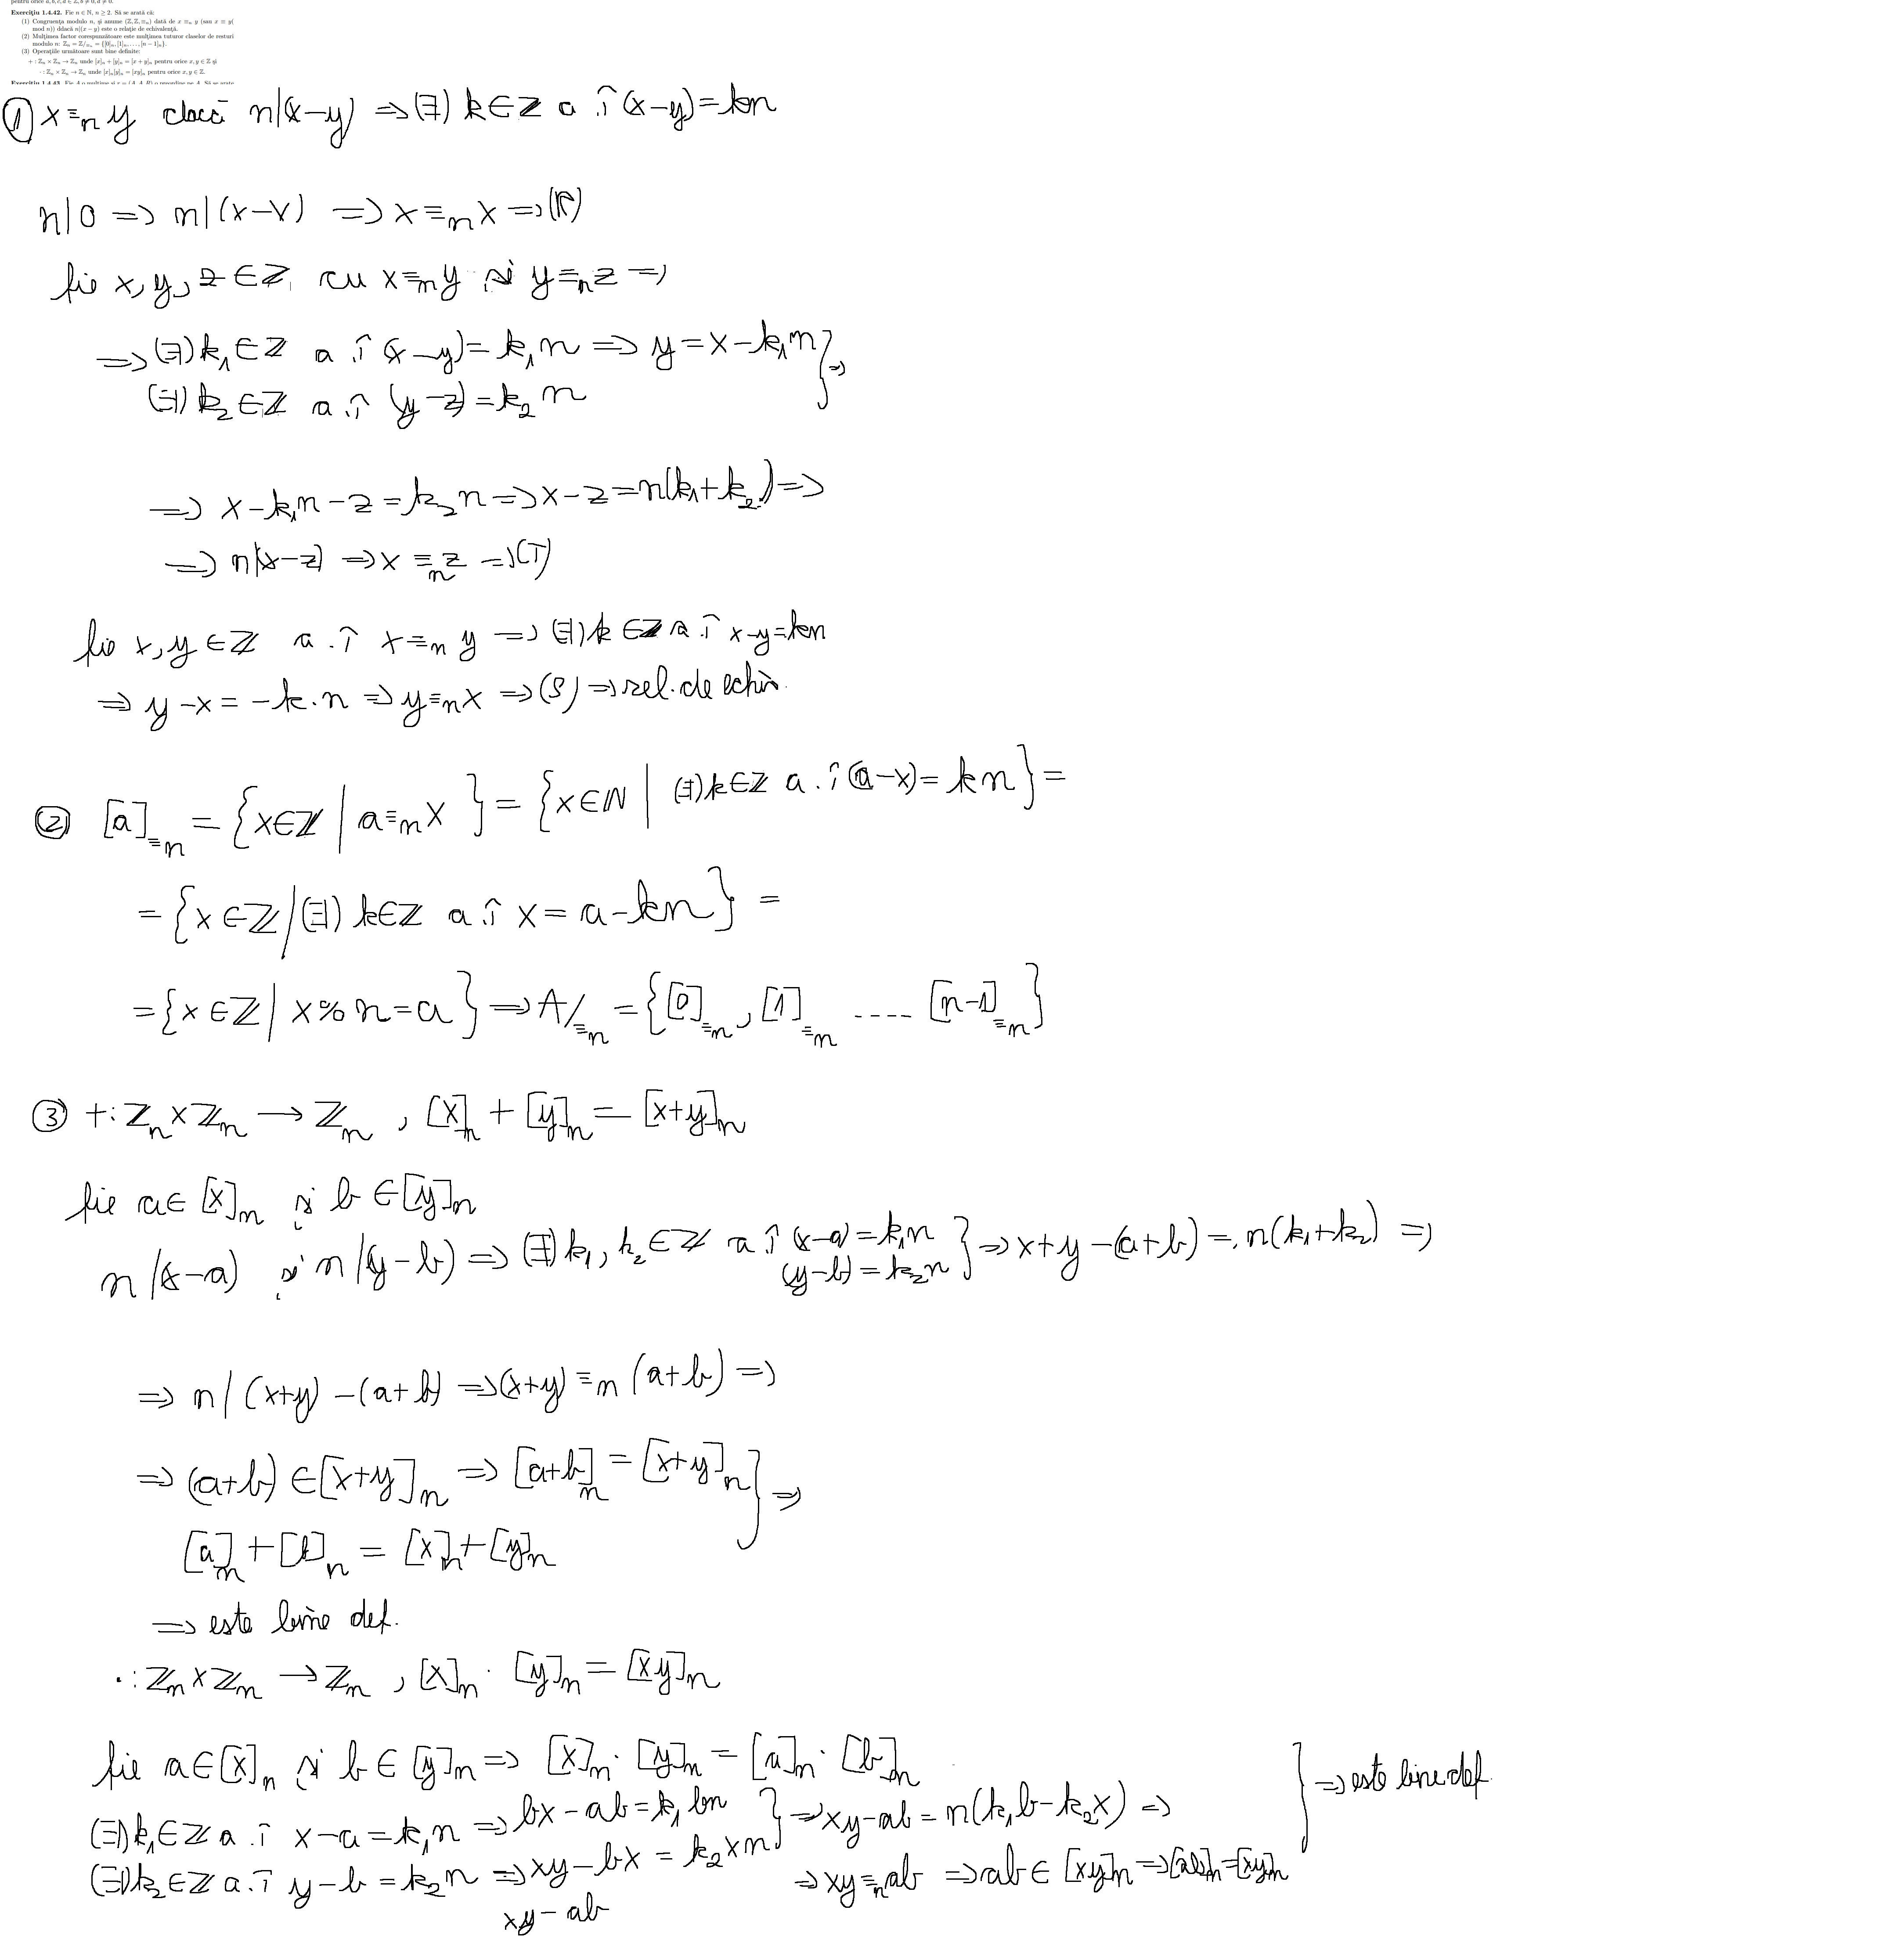 pentru orice a, b, c, d ∈ Z, b ≠ 0, d ≠ 0.
Exercițiu 1.4.42. Fie n ∈ N, n ≥ 2. Să se arată că:
(1) Congruența modulo n, și anume (Z, Z, ≡n) dată de x ≡n y (sau x ≡ y(
mod n)) ddacă n|(x − y) este o relație de echivalență.
(2) Mulțimea factor corespunzătoare este mulțimea tuturor claselor de resturi
modulo n: Zn = Z/≡n = {[0]n, [1]n, . . . , [n − 1]n}.
(3) Operațiile următoare sunt bine definite:
+ : Zn × Zn → Zn unde [x]n + [y]n = [x + y]n pentru orice x, y ∈ Z și
· : Zn × Zn → Zn unde [x]n[y]n = [xy]n pentru orice x, y ∈ Z.
① x ≡n y dacă n|(x−y) => (∃) k∈Z a î (x−y)=kn
n|0 => n|(x−x) => x ≡n x => (R)
fie x, y, z ∈ Z cu x ≡n y și y ≡n z =>
=> (∃) k1 ∈ Z a.î (x−y) = k1n => y = x − k1n } =>
(∃) k2 ∈ Z a.î (y−z) = k2n
=> x − k1n − z = k2n => x − z = n(k1+k2) =>
=> n|(x−z) => x ≡n z => (T)
fie x, y ∈ Z a.î x ≡n y => (∃) k ∈ Z a.î x−y=kn
=> y − x = −k·n => y ≡n x => (S) => rel. de echiv.
② [a]≡n = {x∈Z | a ≡n x } = {x∈N | (∃)k∈Z a.î (a−x) = kn} =
= {x ∈ Z/(∃) k∈Z a.î x = a − kn} =
= {x ∈ Z | x % n = a} => A/≡n = {[0]≡n, [1]≡n .... [n−1]≡n}
③ +: Zn × Zn → Zn , [x]n + [y]n = [x+y]n
fie a∈ [x]n și b ∈ [y]n
n/(x−a) și n/(y−b) => (∃) k1, k2 ∈ Z a î (x−a) = k1n } => x+y −(a+b) = n(k1+k2) =>
(y−b) = k2n
=> n/(x+y) −(a+b) => (x+y) ≡n (a+b) =>
=> (a+b) ∈ [x+y]n => [a+b]n = [x+y]n } =>
[a]n + [b]n = [x]n + [y]n
=> este bine def.
·: Zn × Zn → Zn , [x]n · [y]n = [xy]n
fie a∈[x]n și b ∈ [y]n => [x]n · [y]n = [a]n · [b]n } => este bine def.
(∃)k1∈Z a.î x−a = k1n => bx − ab = k1bn } => xy−ab = n(k1b−k2x) =>
(∃)k2∈Z a.î y−b = k2n => xy − bx = k2xn => xy ≡n ab => ab ∈ [xy]n => [ab]n = [xy]n
xy − ab